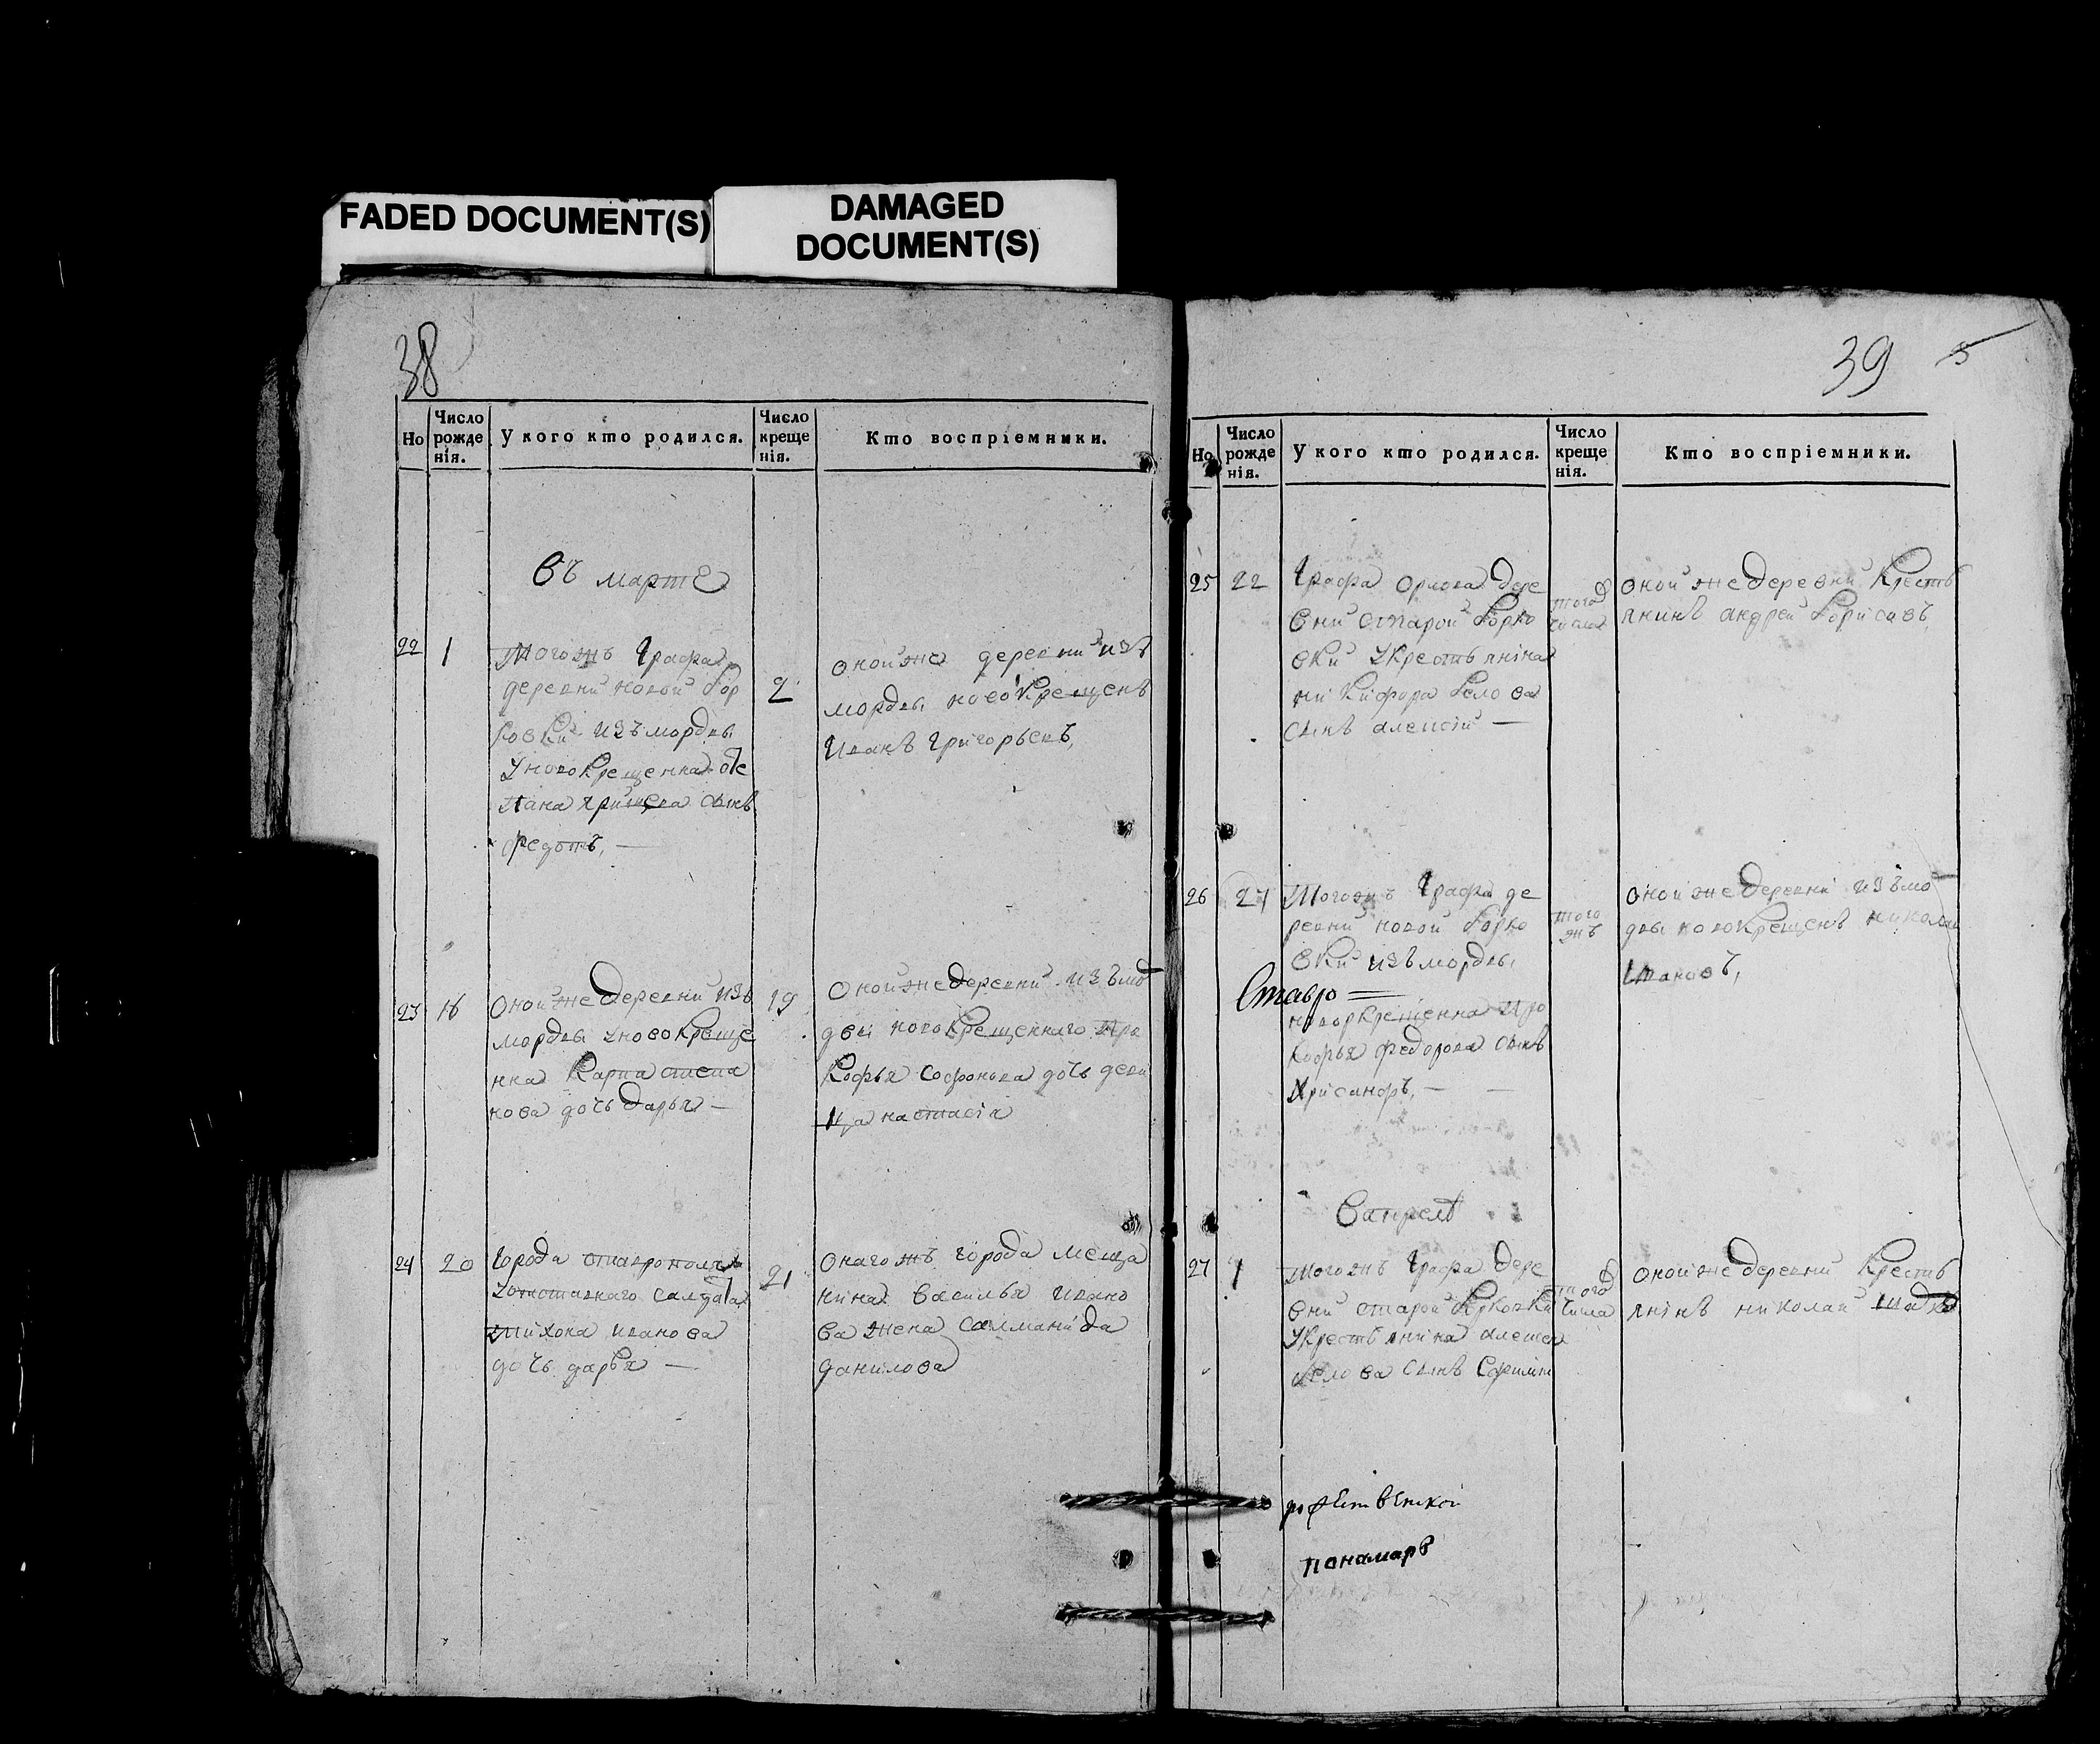 FADED DOCUMENT(S)
DAMAGED
DOCUMENT(S)
38
Но
Число
рожде
нія.
У кого кто родился.
Число
креще
нія.
Кто воспріемники.
въ марте
22
1
Тогожъ Графа
деревни новой Бор
ковки изъ мордвы
у новокрещенна сте
пана сынъ
федотъ,
2
оной же деревни изъ
мордвы новокрещенъ
Иванъ Григорьевъ,
23
16
Оной же деревни изъ
мордвы у новокреще
нна Карпа степа
нова дочь дарья
19
Оной же деревни изъ мо
двы новокрещеннаго Про
кофья софонова дочь деви
ца настасія
24
20
Города ставрополя
у отставнаго салдата
Тихона иванова
дочь дарья
21
Онагожъ города меща
нина василья ивано
ва жена саломанида
данилова
39
5
Но
Число
рожде
нія.
У кого кто родился.
Число
креще
нія.
Кто воспріемники.
25
22
Графа Орлова дере
вни старой Борко
вки у крестьянина
никифора Белова
сынъ алексій
того
числа
Оной же деревни Кресть
янинъ андрей Борисовъ,
26
27
Тогожъ Графа де
ревни новой Борко
вки изъ мордвы
Ставро
новокрещенна Про
кофья федорова сынъ
Хрисанфъ,
того
жъ
Оной же деревни изъ мо
двы новокрещенъ николай
Ивановъ,
В апреле
27
1
Тогожъ Графа дере
вни старой Борковки
у крестьянина алексея
Белова сынъ
того
числа
Оной же деревни Кресть
янинъ николай
рождественской
панамарь